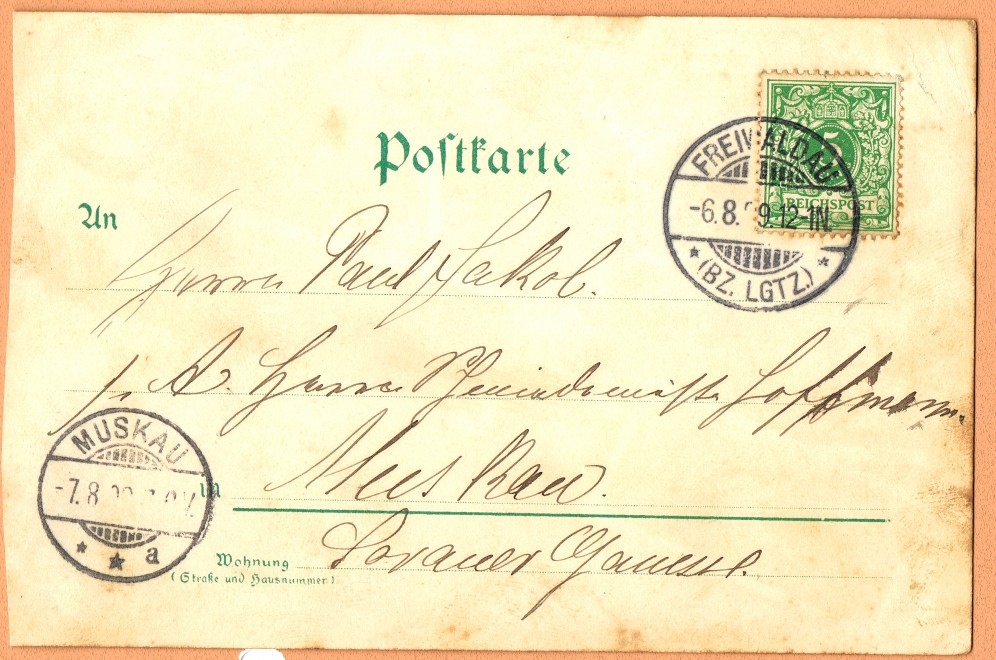 Postkarte
FREIWALDAU
-6.8. 9.12-1N.
(BZ. LGTZ.)
5
REICHSPOST
An
Herrn Paul Jakob.
p. A. Herrn Hoffmann.
Muskau.
MUSKAU
-7.8
a
in
Wohnung
(Straße und Hausnummer)
Sorauer